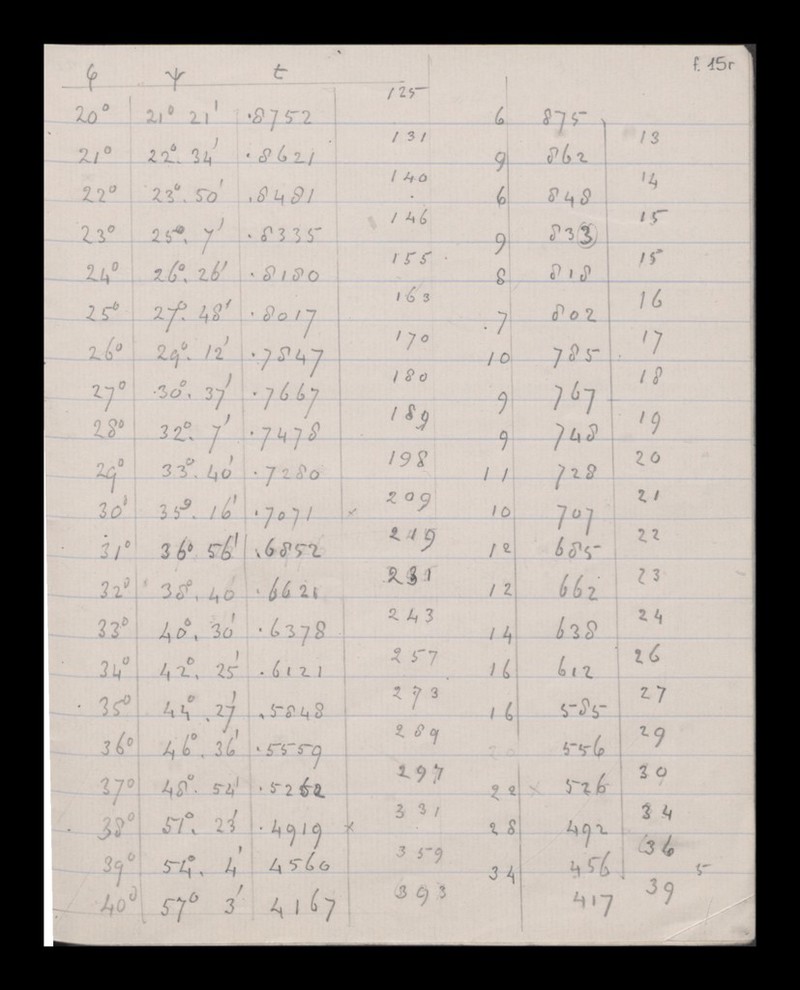 f. 15r
φ ψ t
125
20° 21° 21' .8752 6 875
131 13
21° 22°. 34' .8621 9 862
140 14
22° 23°. 50' .8481 6 848
146 15
23° 25°. 7' .8335 9 833
155 15
24° 26°. 26' .8180 8 818
163 16
25° 27°. 48' .8017 .7 802
170 17
26° 29°. 12' .7847 10 785
180 18
27° 30°. 37' .7667 9 767
189 19
28° 32°. 7' .7478 9 748
198 20
29° 33°. 40' .7280 11 728
209 21
30° 35°. 16' .7071 x 10 707
219 22
31° 36° 56' .6852 12 685
231 23
32° 38°. 40 .6621 12 662
243 24
33° 40°. 30' .6378 14 638
257 26
34° 42°. 25' .6121 16 612
273 27
35° 44°. 27' .5848 16 585
289 29
36° 46°. 36' .5559 20 556
297 30
37° 48°. 54' .5262 22 x 526
331 34
38° 51°. 23' .4919 x 28 492
359 36
39° 54°. 4' 4560 34 456 5
393 39
40° 57° 3' 4167 417